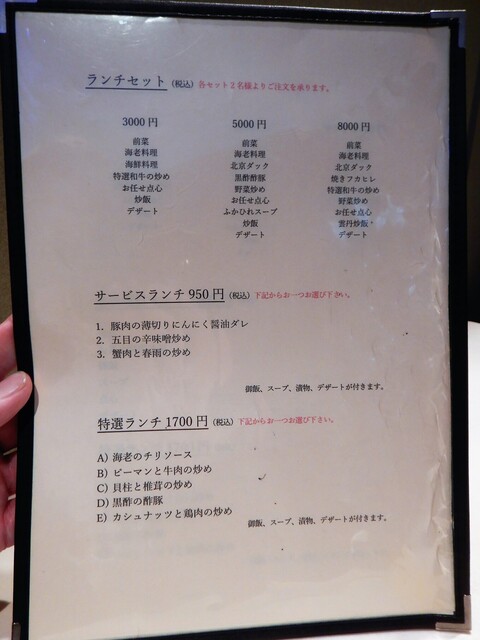 ランチセット (税込) 各セット2名様よりご注文を承ります。
3000 円
前菜
海老料理
海鮮料理
特選和牛の炒め
お任せ点心
炒飯
デザート
5000 円
前菜
海老料理
北京ダック
黒酢酢豚
野菜炒め
お任せ点心
ふかひれスープ
炒飯
デザート
8000 円
前菜
海老料理
北京ダック
焼きフカヒレ
特選和牛の炒め
野菜炒め
お任せ点心
雲丹炒飯
デザート
サービスランチ 950 円 (税込) 下記からお一つお選び下さい。
1. 豚肉の薄切りにんにく醤油ダレ
2. 五目の辛味噌炒め
3. 蟹肉と春雨の炒め
御飯、スープ、漬物、デザートが付きます。
特選ランチ 1700 円 (税込) 下記からお一つお選び下さい。
A) 海老のチリソース
B) ピーマンと牛肉の炒め
C) 貝柱と椎茸の炒め
D) 黒酢の酢豚
E) カシュナッツと鶏肉の炒め
御飯、スープ、漬物、デザートが付きます。